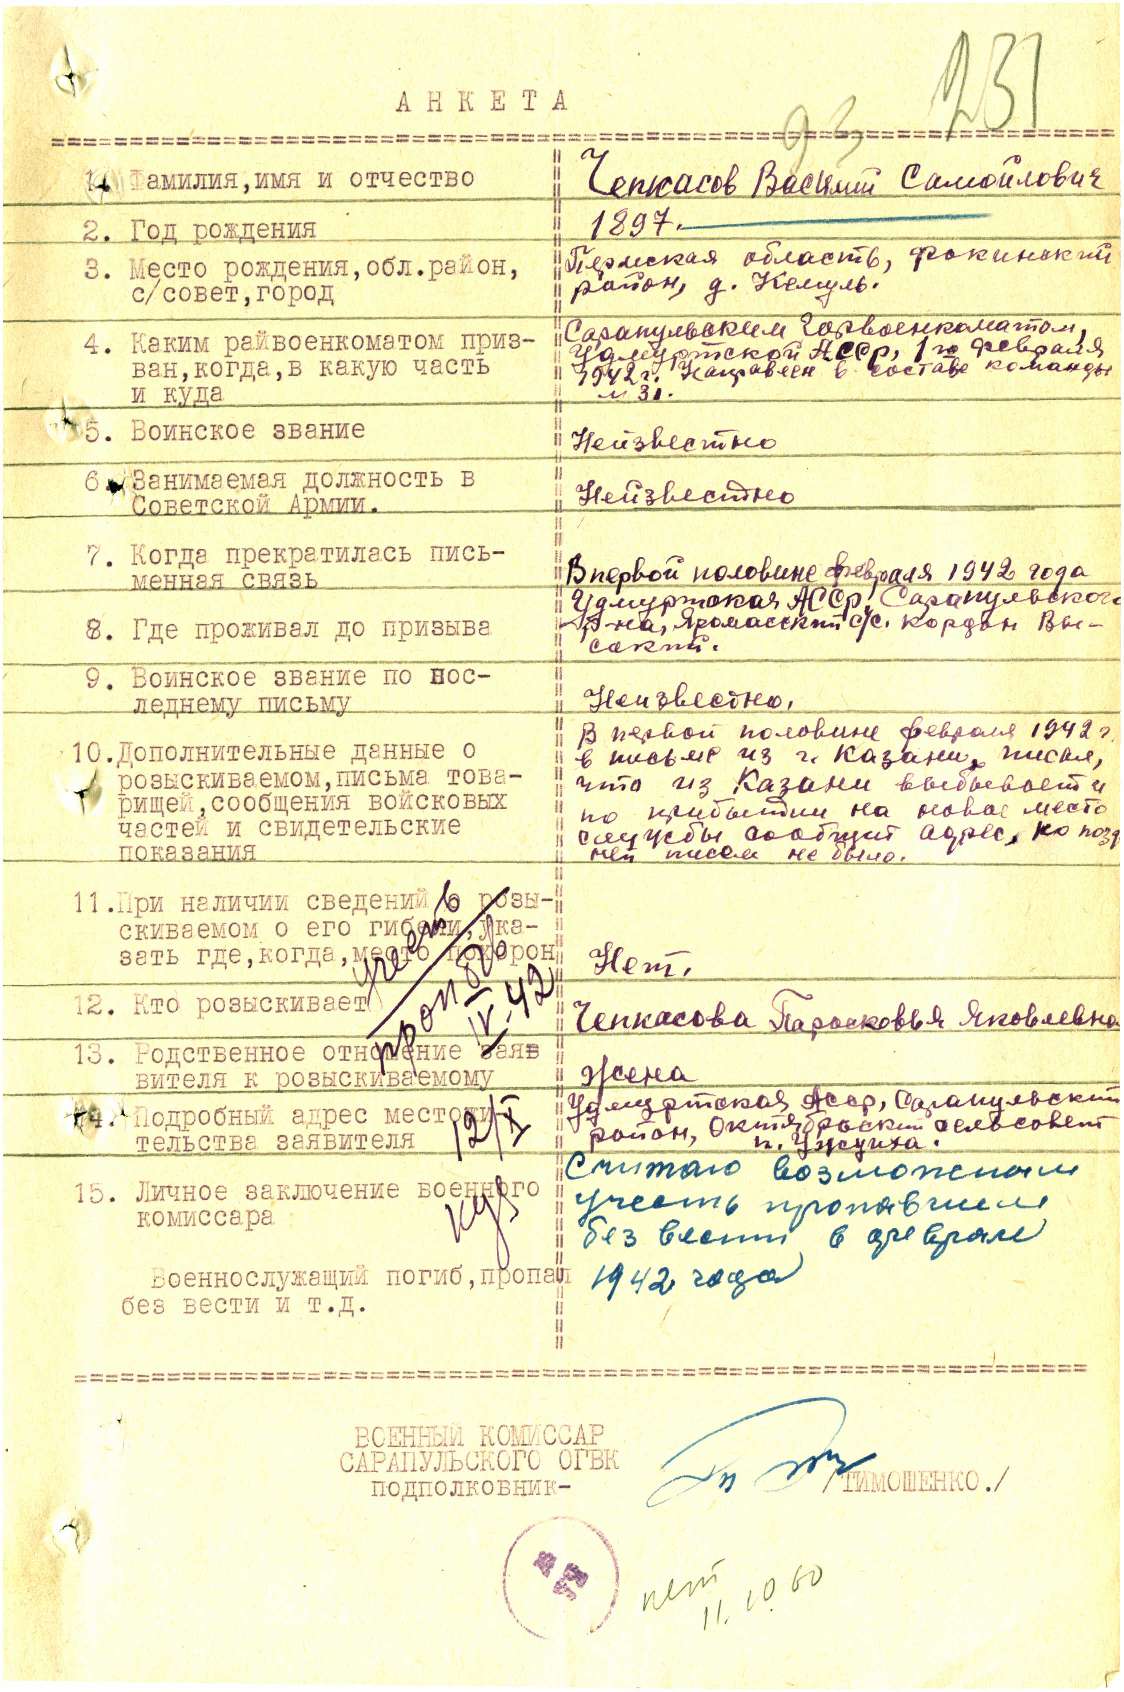 231
АНКЕТА
1. Фамилия,имя и отчество
Чепкасов Василий Самойлович
2. Год рождения
1897.
3. Место рождения,обл.район,
с/совет,город
Пермская область, Фокинский
район, д. Кемуль.
4. Каким райвоенкоматом приз-
ван,когда,в какую часть
и куда
Сарапульским Горвоенкоматом,
Удмуртской АССР, 1го февраля
1942г. Направлен в составе команды
№ 31.
5. Воинское звание
Неизвестно
6. Занимаемая должность в
Советской Армии.
Неизвестно
7. Когда прекратилась пись-
менная связь
В первой половине февраля 1942 года
8. Где проживал до призыва
Удмуртская АССР, Сарапульского
р-на, Яромасский с/с. кордон Вы-
сокий.
9. Воинское звание по пос-
леднему письму
Неизвестно.
10.Дополнительные данные о
розыскиваемом,письма това-
рищей,сообщения войсковых
частей и свидетельские
показания
В первой половине февраля 1942 г.
в письме из г. Казани, писал,
что из Казани выбывает и
по прибытии на новое место
службы сообщит адрес, но позд
ней писем не было.
11.При наличии сведений о розы-
скиваемом о его гибели,ука-
зать где,когда,место похорон
Нет.
12. Кто розыскивает
Чепкасова Парасковья Яковлевна
13. Родственное отношение заяв
вителя к розыскиваемому
Жена
14. Подробный адрес местожи
тельства заявителя
Удмуртская АССР, Сарапульский
район, Октябрьский сельсовет
п.
15. Личное заключение военного
комиссара
Военнослужащий погиб,пропал
без вести и т.д.
Считаю возможным
учесть пропавшим
без вести в феврале
1942 года
учесть
проп б/в
IV-42
12/X
ВОЕННЫЙ КОМИССАР
САРАПУЛЬСКОГО ОГВК
ПОДПОЛКОВНИК-
/ТИМОШЕНКО./
нет
11.10.60